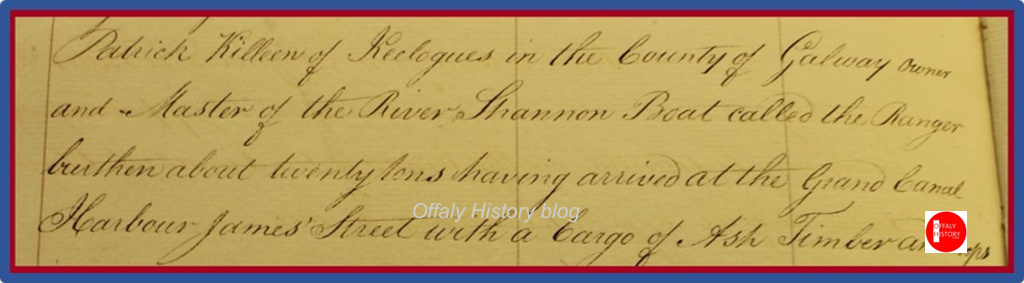 Patrick Killeen of Keelogues in the County of Galway owner
and Master of the River Shannon Boat called the Ranger
burthen about twenty tons having arrived at the Grand Canal
Offaly History blog
Harbour James' Street with a Cargo of Ash Timber
OFFALY
HISTORY